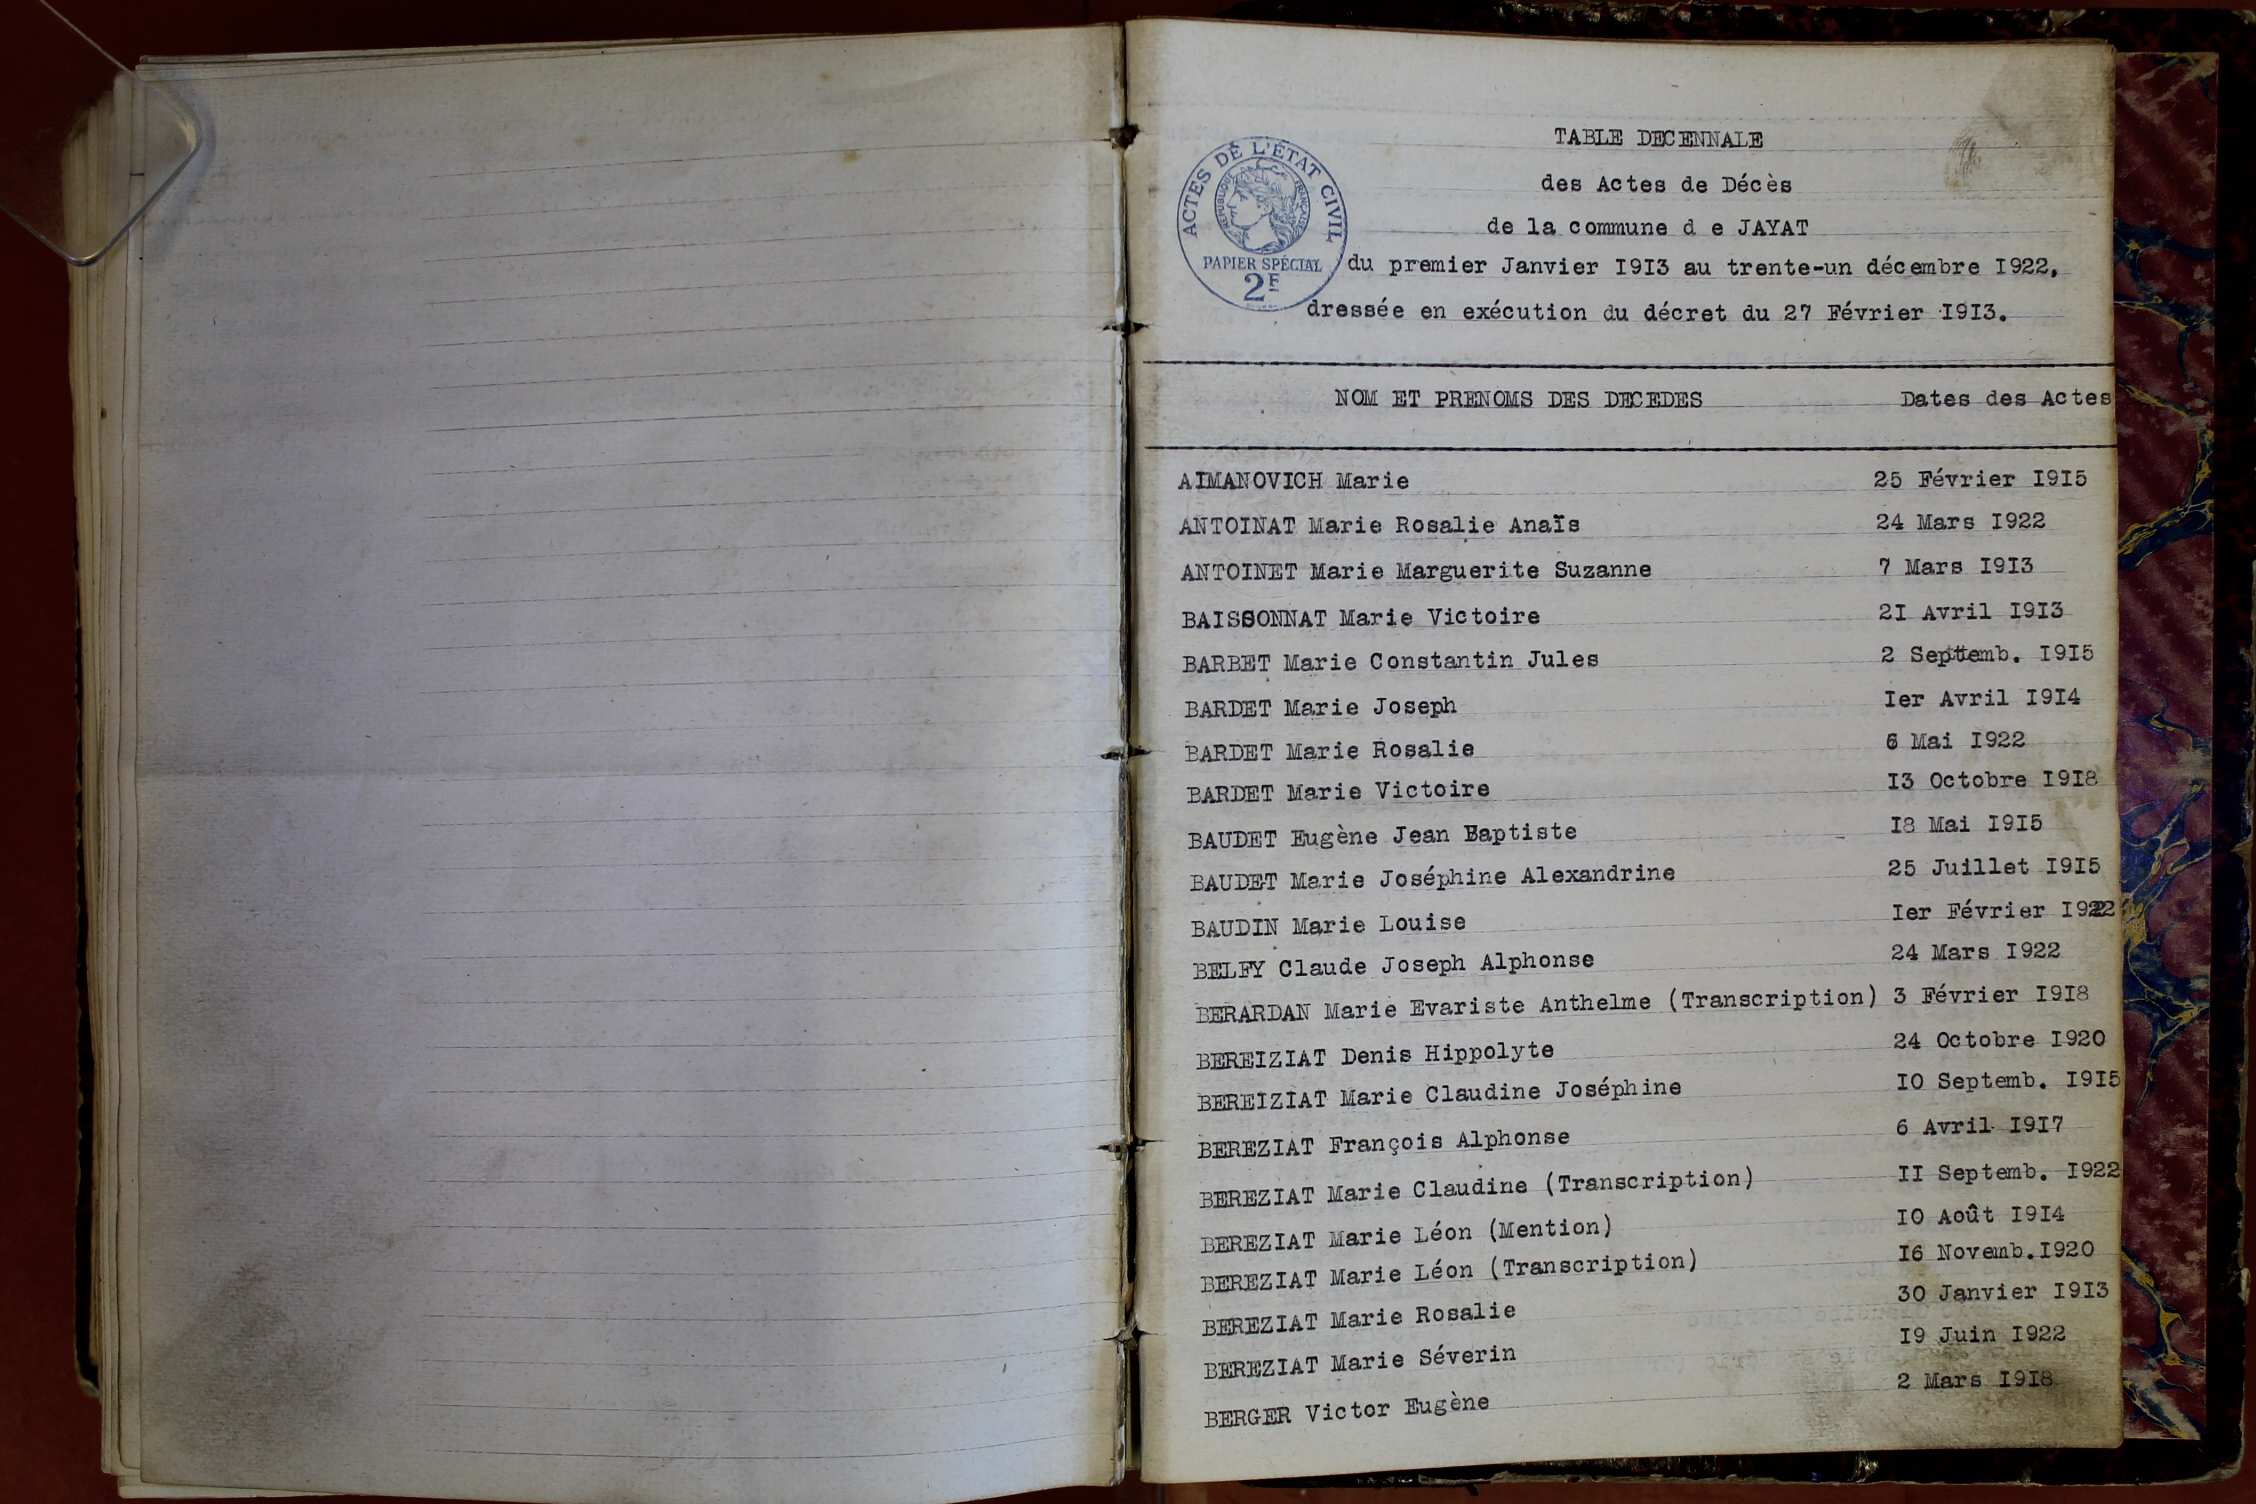 TABLE DECENNALE
des Actes de Décès
de la commune d e JAYAT
ACTES DE L'ÉTAT CIVIL
RÉPUBLIQUE FRANÇAISE
PAPIER SPÉCIAL
2F
du premier Janvier I9I3 au trente-un décembre I922,
dressée en exécution du décret du 27 Février I9I3.
NOM ET PRENOMS DES DECEDES Dates des Actes
AIMANOVICH Marie 25 Février I9I5
ANTOINAT Marie Rosalie Anaïs 24 Mars I922
ANTOINET Marie Marguerite Suzanne 7 Mars I9I3
BAISSONNAT Marie Victoire 2I Avril I9I3
BARBET Marie Constantin Jules 2 Septemb. I9I5
BARDET Marie Joseph Ier Avril I9I4
BARDET Marie Rosalie 6 Mai I922
BARDET Marie Victoire I3 Octobre I9I8
BAUDET Eugène Jean Baptiste I8 Mai I9I5
BAUDET Marie Joséphine Alexandrine 25 Juillet I9I5
BAUDIN Marie Louise Ier Février I922
BELFY Claude Joseph Alphonse 24 Mars I922
BERARDAN Marie Evariste Anthelme (Transcription) 3 Février I9I8
BEREIZIAT Denis Hippolyte 24 Octobre I920
BEREIZIAT Marie Claudine Joséphine I0 Septemb. I9I5
BEREZIAT François Alphonse 6 Avril I9I7
BEREZIAT Marie Claudine (Transcription) II Septemb. I922
BEREZIAT Marie Léon (Mention) I0 Août I9I4
BEREZIAT Marie Léon (Transcription) I6 Novemb.I920
BEREZIAT Marie Rosalie 30 Janvier I9I3
BEREZIAT Marie Séverin I9 Juin I922
BERGER Victor Eugène 2 Mars I9I8